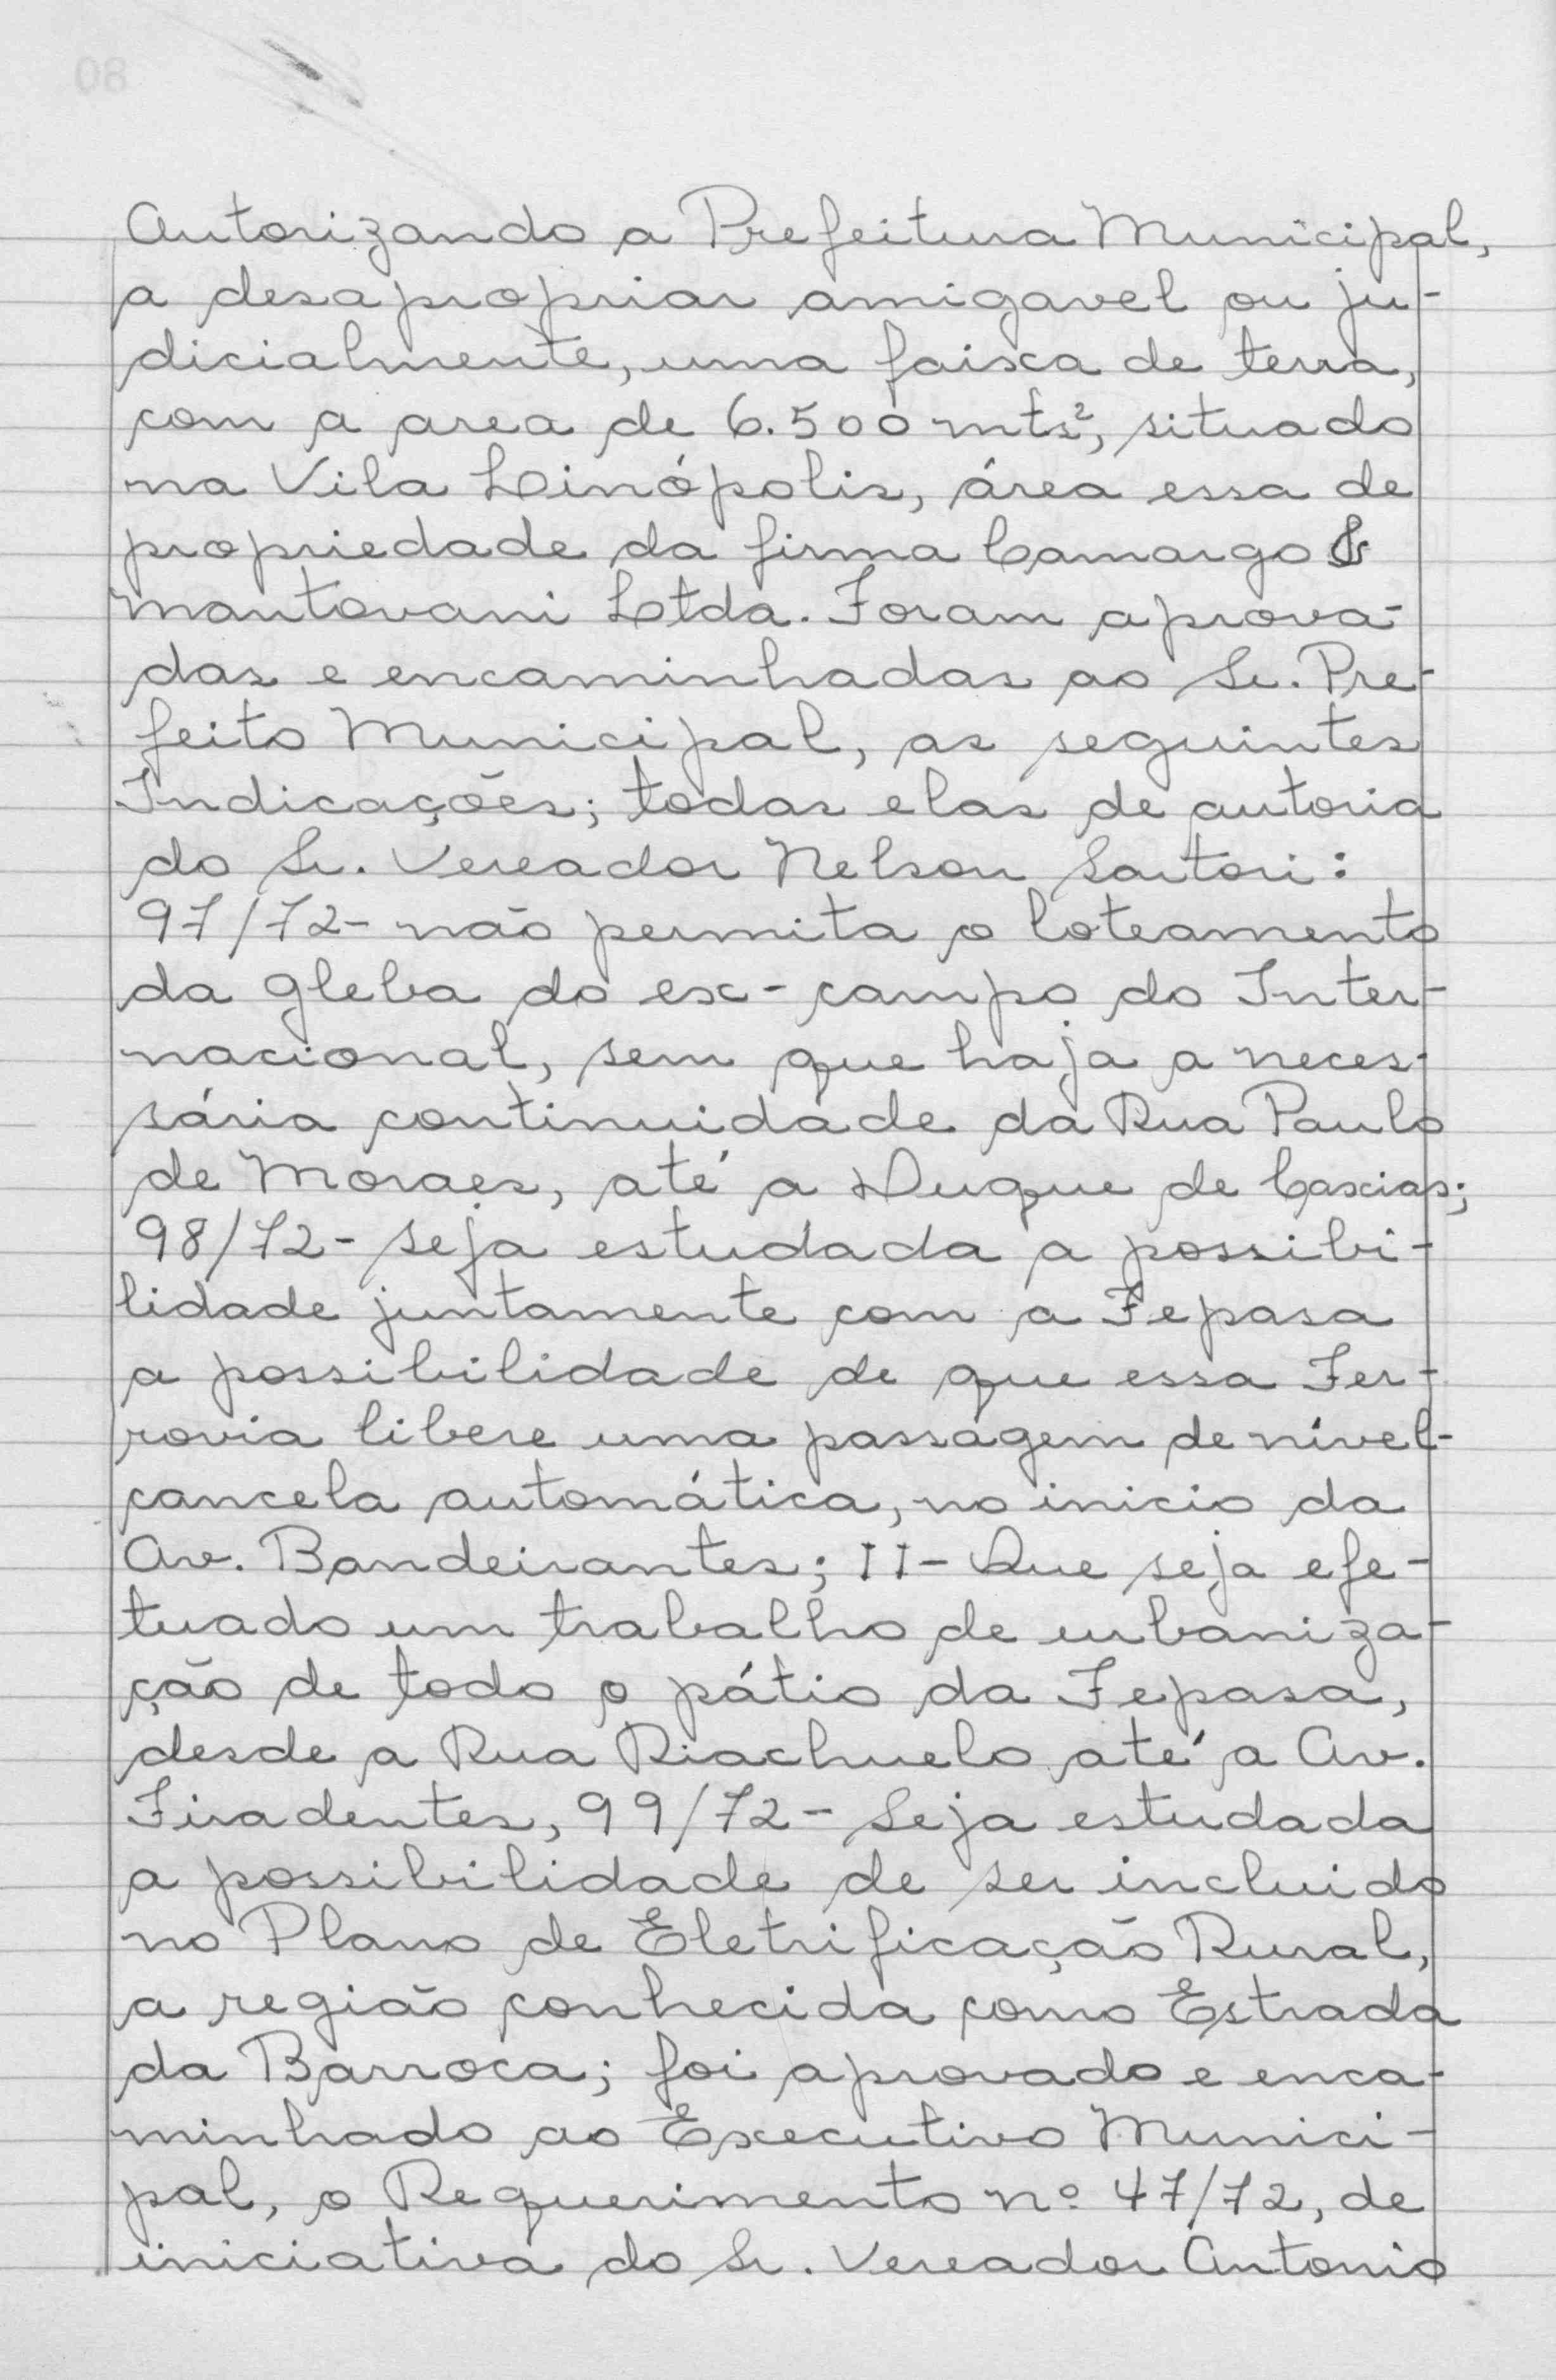 Autorizando a Prefeitura Municipal,
a desapropriar amigavel ou ju-
dicialmente, uma faixa de terra,
com a area de 6.500 mts², situado
na Vila Linópolis, área essa de
propriedade da firma Camargo &
Mantovani Ltda. Foram aprova-
das e encaminhadas ao Sr. Pre-
feito Municipal, as seguintes
Indicações; todas elas de autoria
do Sr. Vereador Nelson Sartori:
97/72- não permita o loteamento
da gleba do ex-campo do Inter-
nacional, sem que haja a neces-
sária continuidade da Rua Paulo
de Moraes, até a Duque de Caxias;
98/72- seja estudada a possibi-
lidade juntamente com a Fepasa
a possibilidade de que essa Fer-
rovia libere uma passagem de nível-
cancela automática, no inicio da
Av. Bandeirantes; II- Que seja efe-
tuado um trabalho de urbaniza-
ção de todo o pátio da Fepasa,
desde a Rua Riachuelo até a Av.
Tiradentes, 99/72- Seja estudada
a possibilidade de ser incluido
no Plano de Eletrificação Rural,
a região conhecida como Estrada
da Barroca; foi aprovado e enca-
minhado ao Executivo Munici-
pal, o Requerimento nº 47/72, de
iniciativa do Sr. Vereador Antonio